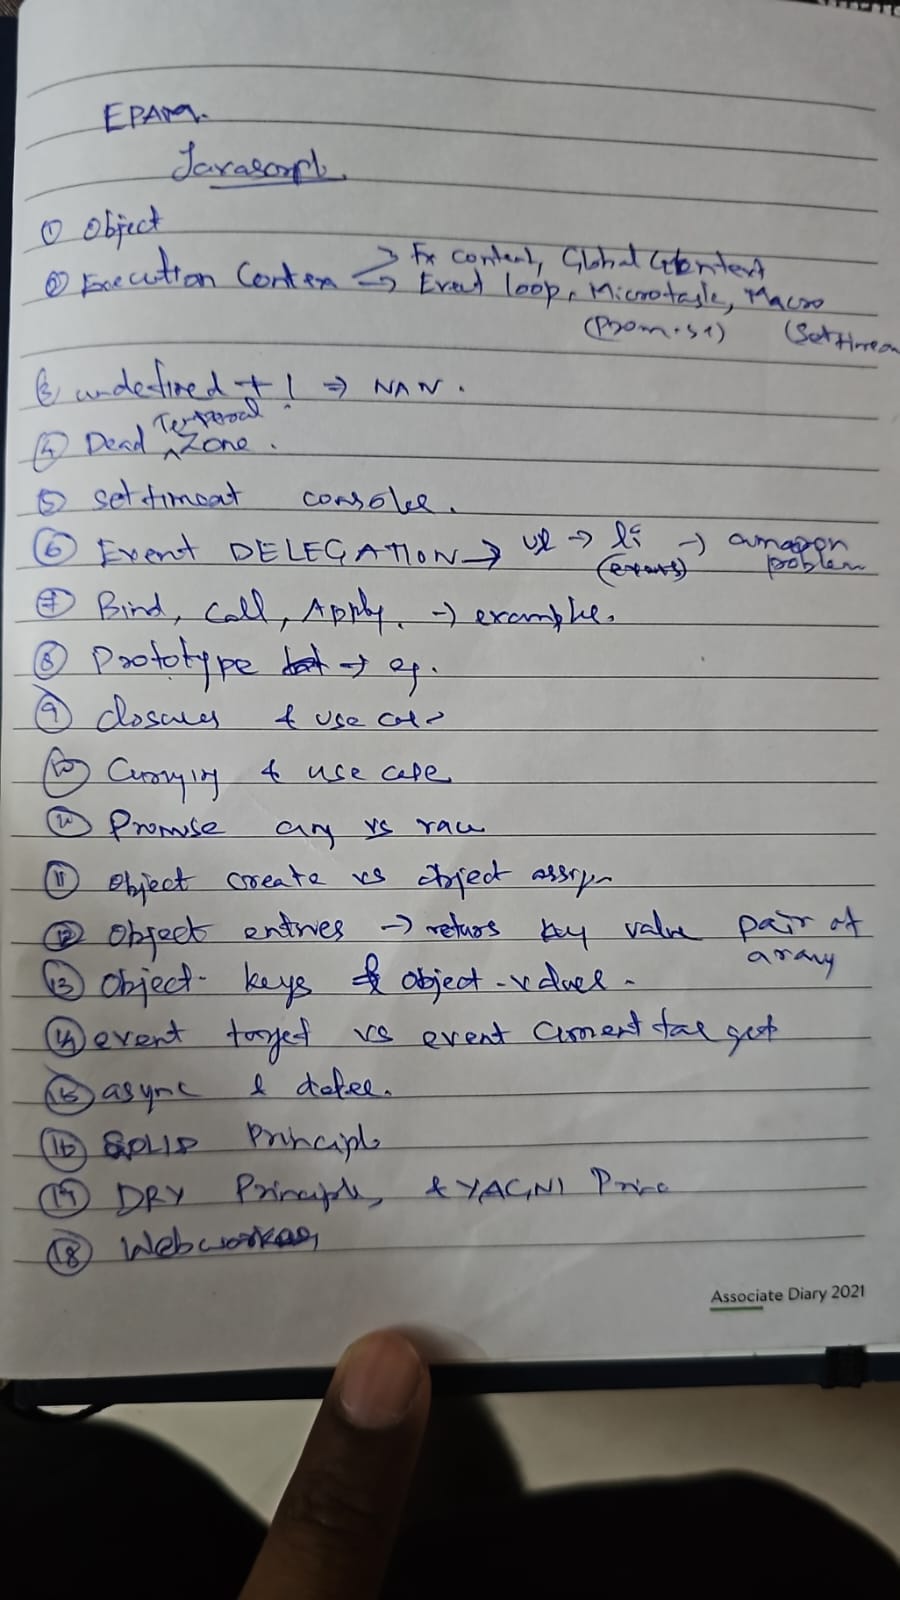 EPAM.
Javascript
① Object
② Execution Contex → Fx context, Global Context
→ Event loop, Microtask, Macro
(Promise) (Settimeou
3 undefined + 1 ⇒ NAN.
④ Dead Temporal Zone.
⑤ settimeout consoles.
⑥ Event DELEGATION → ul → li → amazon problem
(events)
⑦ Bind, Call, Apply. → examples.
⑧ Prototype → eg.
⑨ closures & use case
⑩ Currying & use case
Promise any vs race
⑪ Object create vs object assign
⑫ Object entries → returs key value pair of array
⑬ Object- keys & object-values.
⑭ event target vs event current target
⑮ async & defer.
⑯ SOLID Principle
⑰ DRY Principle, & YAGNI Princ
⑱ Webworkers
Associate Diary 2021